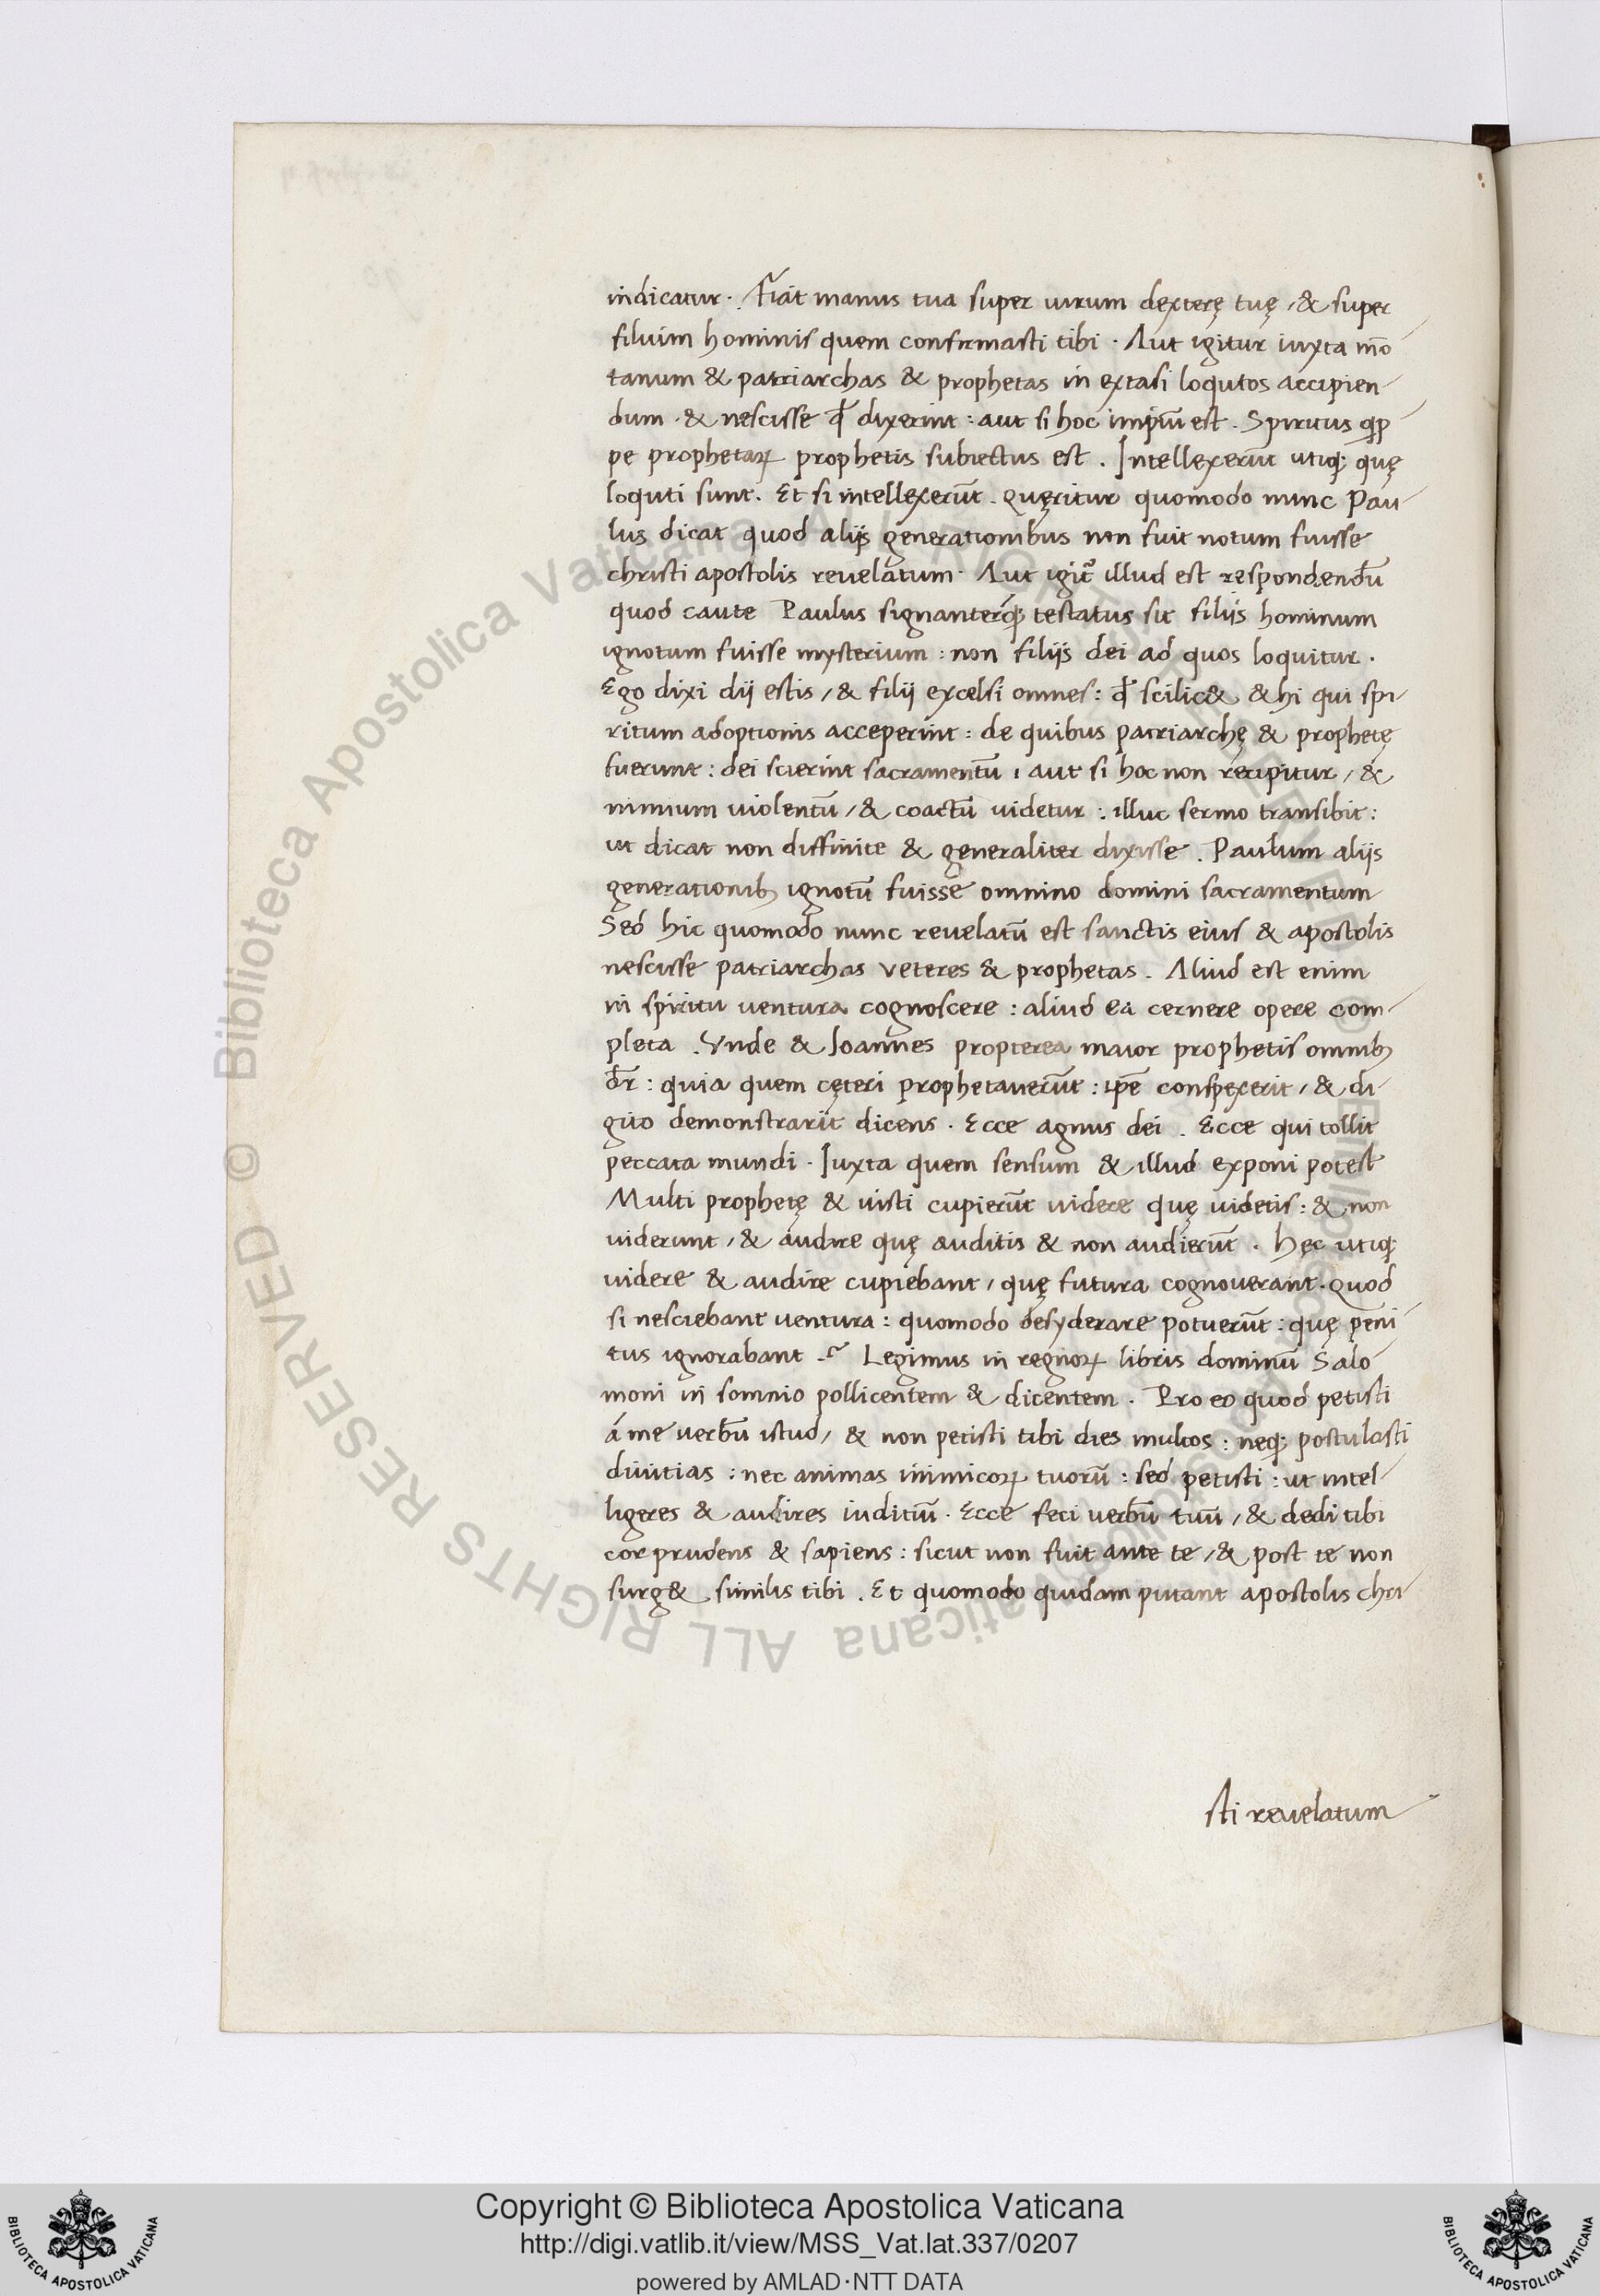 indicatur. Fiat manus tua super uirum dexterę tuę, & super
filium hominis quem confirmasti tibi. Aut igitur iuxta mō
tanum & patriarchas & prophetas in extasi loqutos accipien-
dum. & nescisse qđ dixerint: aut si hoc impiū est. Spiritus qp̄
pe prophetaꝝ prophetis subiectus est. Intellexerūt utiqꝫ quę
loquti sunt. Et si intellexerūt. Quęritur quomodo nunc Pau-
lus dicat quod alijs generationibus non fuit notum fuisse
christi apostolis reuelatum. Aut igit᷑ illud est respondendū
quod caute Paulus signanterqꝫ testatus sit filijs hominum
ignotum fuisse mysterium: non filijs dei ad quos loquitur.
Ego dixi dij estis, & filij excelsi omnes: qđ scilic& & hi qui spi-
ritum adoptionis acceperint: de quibus patriarchę & prophetę
fuerunt: dei scierint sacramentū: aut si hoc non recipitur, &
nimium uiolentū, & coactū uidetur: illuc sermo transibit:
ut dicat non diffinite & generaliter dixisse. Paulum alijs
generationibꝫ ignotū fuisse omnino domini sacramentum
Sed hic quomodo nunc reuelatū est sanctis eius & apostolis
nescisse patriarchas veteres & prophetas. Aliud est enim
in spiritu uentura cognoscere: aliud ea cernere opere com-
pleta. Vnde & Ioannes propterea maior prophetis omnibꝫ
dr̄: quia quem cęteri prophetauerūt: ip̄e conspexerit, & di-
gito demonstrarit dicens. Ecce agnus dei. Ecce qui tollit
peccata mundi. Iuxta quem sensum & illud exponi potest
Multi prophetę & iusti cupierūt uidere quę uidetis: & non
uiderunt, & audire quę auditis & non audierūt. Hęc utiqꝫ
uidere & audire cupiebant, quę futura cognouerant. Quod
si nesciebant uentura: quomodo desyderare potuerūt: quę peni-
tus ignorabant? Legimus in regnoꝝ libris dominū Salo-
moni in somnio pollicentem & dicentem. Pro eo quod petisti
á me uerbū istud, & non petisti tibi dies multos: neqꝫ postulasti
diuitias: nec animas inimicoꝝ tuorū: sed petisti: ut intel-
ligeres & audires iuditiū. Ecce feci uerbū tuū, & dedi tibi
cor prudens & sapiens: sicut non fuit ante te, & post te non
surg& similis tibi. Et quomodo quidam putant apostolis chri-
sti reuelatum
© Biblioteca Apostolica Vaticana ALL RIGHTS RESERVED
© Biblioteca Apostolica Vaticana ALL RIGHTS RESERVED
Copyright © Biblioteca Apostolica Vaticana
http://digi.vatlib.it/view/MSS_Vat.lat.337/0207
powered by AMLAD·NTT DATA
BIBLIOTECA APOSTOLICA VATICANA
BIBLIOTECA APOSTOLICA VATICANA